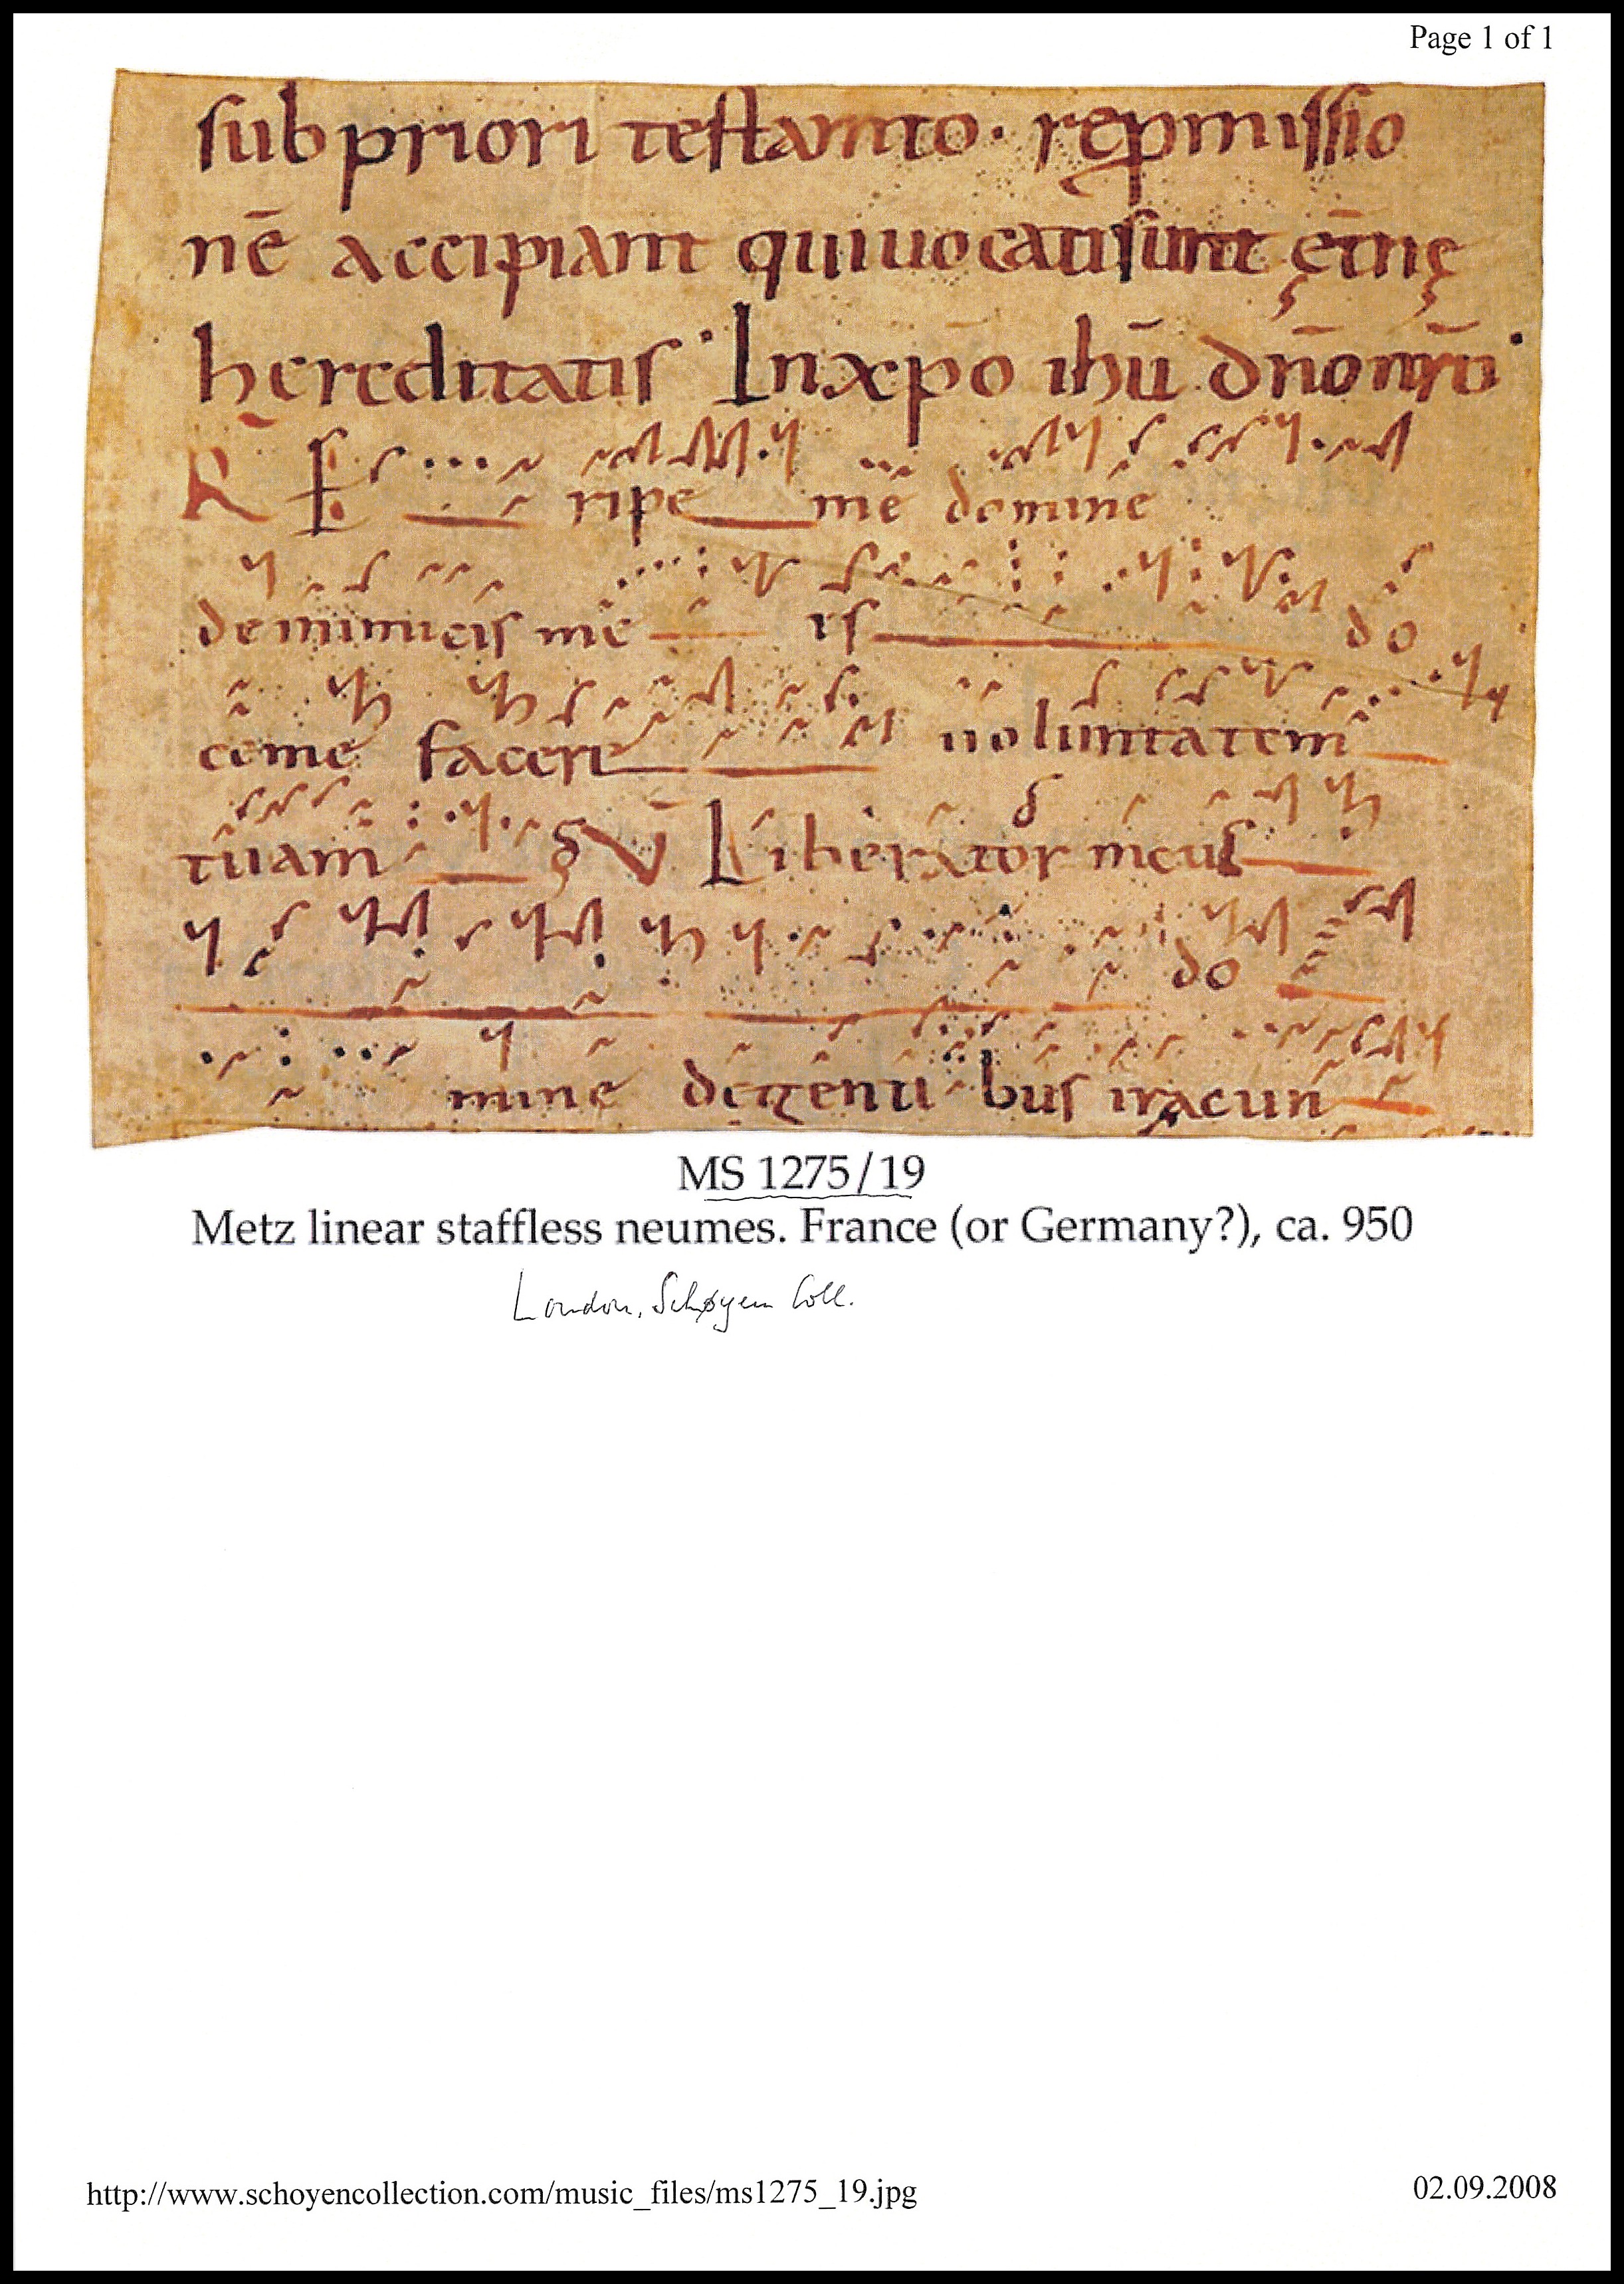 Page 1 of 1
sub priori testam̄to· rep̱missio
nē accipiant qui uocati sunt ęt̄nę
hereditatis· In xp̄o ihū dn̄o nr̄o·
R E ripe me domine
de inimicis me is do
ce me facere uoluntatem
tuam V Liberator meus
do
mine de gentibus iracun
MS 1275/19
Metz linear staffless neumes. France (or Germany?), ca. 950
London, Schøyen Coll.
http://www.schoyencollection.com/music_files/ms1275_19.jpg
02.09.2008